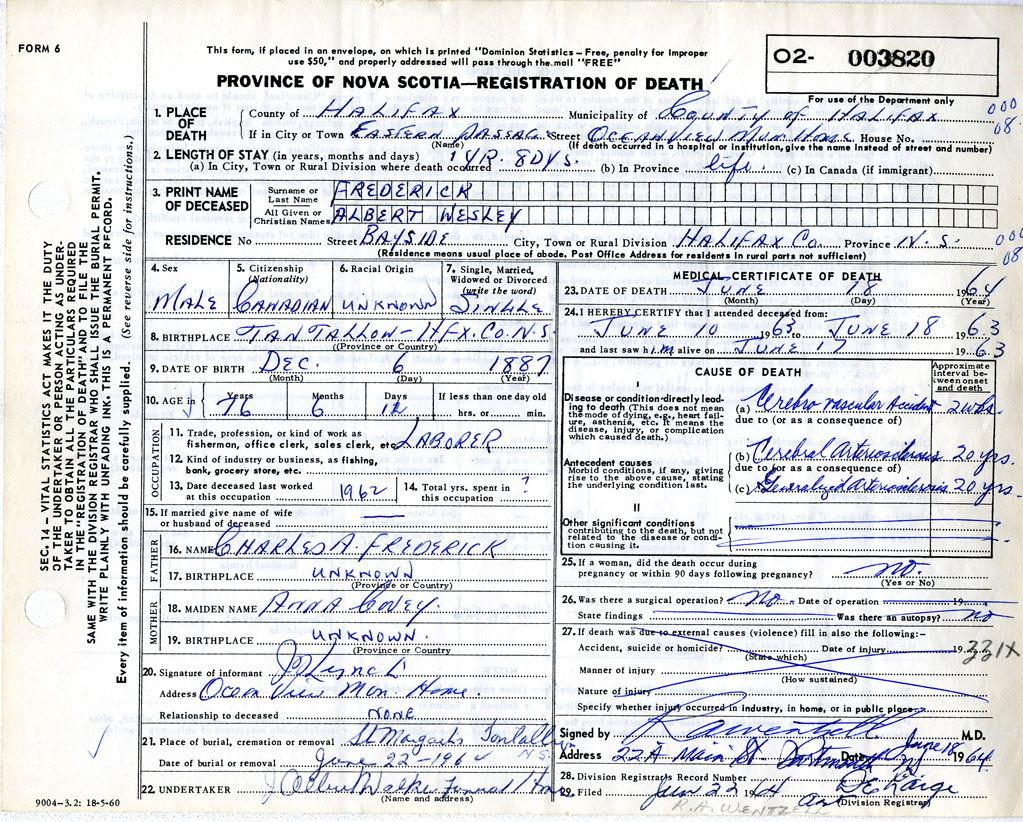 FORM 6
This form, if placed in an envelope, on which is printed "Dominion Statistics – Free, penalty for improper
use $50," and properly addressed will pass through the mail "FREE"
PROVINCE OF NOVA SCOTIA—REGISTRATION OF DEATH
02- 003820
For use of the Department only
SEC. 14 – VITAL STATISTICS ACT MAKES IT THE DUTY
OF THE UNDERTAKER OR PERSON ACTING AS UNDER-
TAKER TO OBTAIN ALL THE PARTICULARS REQUIRED
IN THE "REGISTRATION OF DEATH" AND TO FILE THE
SAME WITH THE DIVISION REGISTRAR WHO SHALL ISSUE THE BURIAL PERMIT.
WRITE PLAINLY WITH UNFADING INK. THIS IS A PERMANENT RECORD.
Every item of information should be carefully supplied. (See reverse side for instructions.)
1. PLACE OF DEATH
County of HALIFAX Municipality of COUNTY OF HALIFAX 000
If in City or Town EASTERN PASSAGE Street OCEAN VIEW MUN. HOME House No. 08
(Name) (If death occurred in a hospital or institution, give the name instead of street and number)
2. LENGTH OF STAY (in years, months and days) 1 YR. 8 DYS.
(a) In City, Town or Rural Division where death occurred (b) In Province life. (c) In Canada (if immigrant)
3. PRINT NAME OF DECEASED
Surname or Last Name FREDERICK
All Given or Christian Names ALBERT WESLEY
RESIDENCE No Street BAYSIDE City, Town or Rural Division HALIFAX Co. Province N.S. 000
(Residence means usual place of abode. Post Office Address for residents in rural parts not sufficient) 08
4. Sex MALE
5. Citizenship (Nationality) CANADIAN
6. Racial Origin UNKNOWN
7. Single, Married, Widowed or Divorced (write the word) SINGLE
8. BIRTHPLACE TANTALLON – HFX. CO. N.S.
(Province or Country)
9. DATE OF BIRTH DEC. 6 1887
(Month) (Day) (Year)
10. AGE in Years Months Days If less than one day old
76 6 12 hrs. or min.
OCCUPATION
11. Trade, profession, or kind of work as
fisherman, office clerk, sales clerk, etc. LABORER
12. Kind of industry or business, as fishing,
bank, grocery store, etc.
13. Date deceased last worked at this occupation 1962
14. Total yrs. spent in this occupation ?
15. If married give name of wife
or husband of deceased —
FATHER
16. NAME CHARLES A. FREDERICK
17. BIRTHPLACE UNKNOWN
(Province or Country)
MOTHER
18. MAIDEN NAME ANNA COVEY.
19. BIRTHPLACE UNKNOWN.
(Province or Country)
20. Signature of informant
Address Ocean View Mun. Home
Relationship to deceased NONE
21. Place of burial, cremation or removal St Margarets Tantallon N.S.
Date of burial or removal June 22 - 1964
22. UNDERTAKER J Albert Walker Funeral Home
(Name and address)
9004–3.2: 18-5-60
MEDICAL CERTIFICATE OF DEATH
23. DATE OF DEATH JUNE 18 1964
(Month) (Day) (Year)
24. I HEREBY CERTIFY that I attended deceased from:
JUNE 10 1963 to JUNE 18 1963
and last saw him alive on JUNE 17 1963
CAUSE OF DEATH
Approximate interval between onset and death
I
Disease or condition directly lead-
ing to death (This does not mean
the mode of dying, e.g., heart fail-
ure, asthenia, etc. It means the
disease, injury, or complication
which caused death.)
(a) Cerebro vascular Accident 2 wks.
due to (or as a consequence of)
Antecedent causes
Morbid conditions, if any, giving
rise to the above cause, stating
the underlying condition last.
(b) Cerebral Arteriosclerosis 20 yrs.
due to (or as a consequence of)
(c) Generalized Arteriosclerosis 20 yrs.
II
Other significant conditions
contributing to the death, but not
related to the disease or condi-
tion causing it.
25. If a woman, did the death occur during
pregnancy or within 90 days following pregnancy? no.
(Yes or No)
26. Was there a surgical operation? No. Date of operation 19
State findings Was there an autopsy? no
27. If death was due to external causes (violence) fill in also the following:–
Accident, suicide or homicide? Date of injury 19 331X
(State which)
Manner of injury
(How sustained)
Nature of injury
Specify whether injury occurred in industry, in home, or in public place
Signed by RA Wentzell M.D.
Address 22A Main St. Dartmouth Date June 18 1964
28. Division Registrars Record Number
29. Filed Jun 22 1964
(Division Registrar)
R. A. WENTZELL